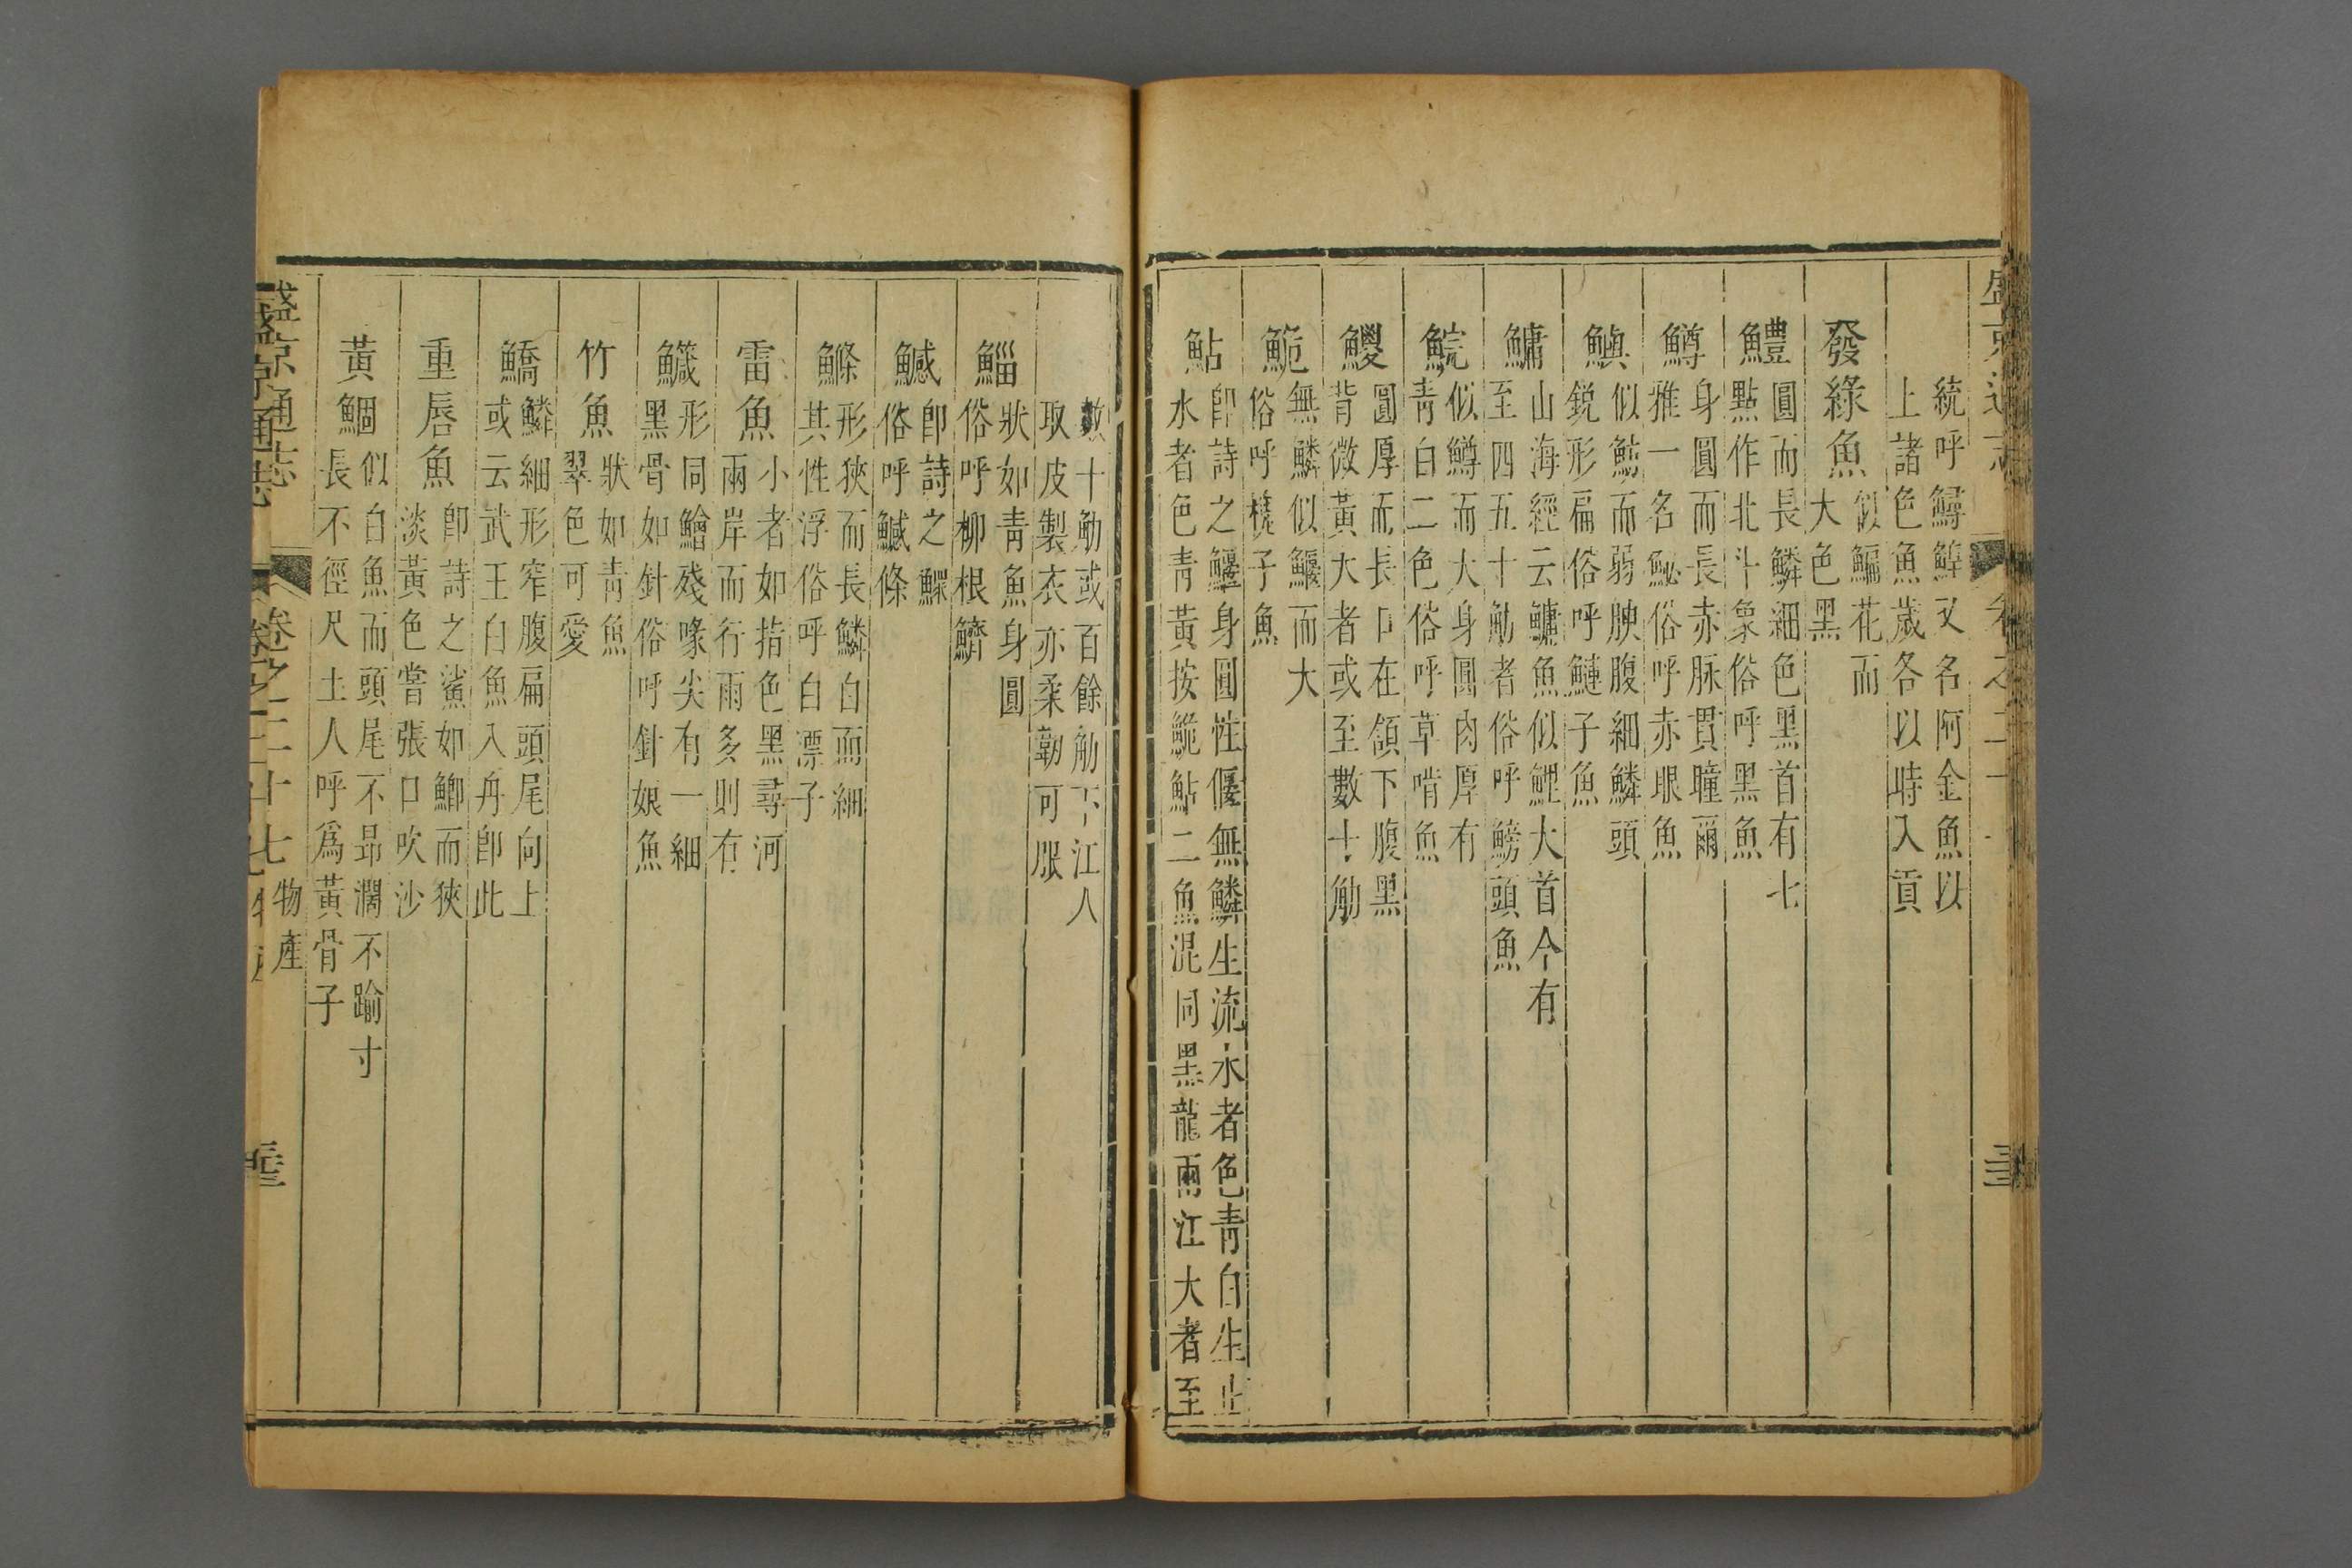 統呼鱘鰉又名阿金魚以
上諸色魚歲各以時入貢
發綠魚
似鯿花而
大色黑
鱧
圓而長鱗細色黑首有七
點作北斗象俗呼黑魚
鱒
身圓而長赤脉貫瞳爾
雅一名鮅俗呼赤眼魚
鱮
似魴而弱腴腹細鱗頭
銳形扁俗呼鰱子魚
鱅
山海經云鱅魚似鯉大首今有
至四五十觔者俗呼鰟頭魚
鯇
似鱒而大身圓肉厚有
青白二色俗呼草啃魚
鯼
圓厚而長口在頷下腹黑
背微黃大者或至數十觔
鮠
無鱗似鰋而大
俗呼
子魚
鮎
卽詩之鰋身圓性偃無鱗生流水者色青白生止
水者色青黃按鮠鮎二魚混同黑龍兩江大者至
數十觔或百餘觔下江人
取皮製衣亦柔韌可服
鯔
狀如青魚身圓
俗呼柳根
鰔
卽詩之鰥
俗呼鰔條
鰷
形狹而長鱗白而細
其性浮俗呼白漂子
雷魚
小者如指色黑尋河
兩岸而行雨多則有
鱵
形同鱠殘喙尖有一細
黑骨如針俗呼針娘魚
竹魚
狀如青魚
翠色可愛
鱎
鱗細形窄腹扁頭尾向上
或云武王白魚入舟卽此
重唇魚
卽詩之鯊如鯽而狹
淡黃色嘗張口吹沙
黃鯝
似白魚而頭尾不昂濶不踰寸
長不徑尺土人呼爲黃骨子
盛京通志
卷之二十七
物產